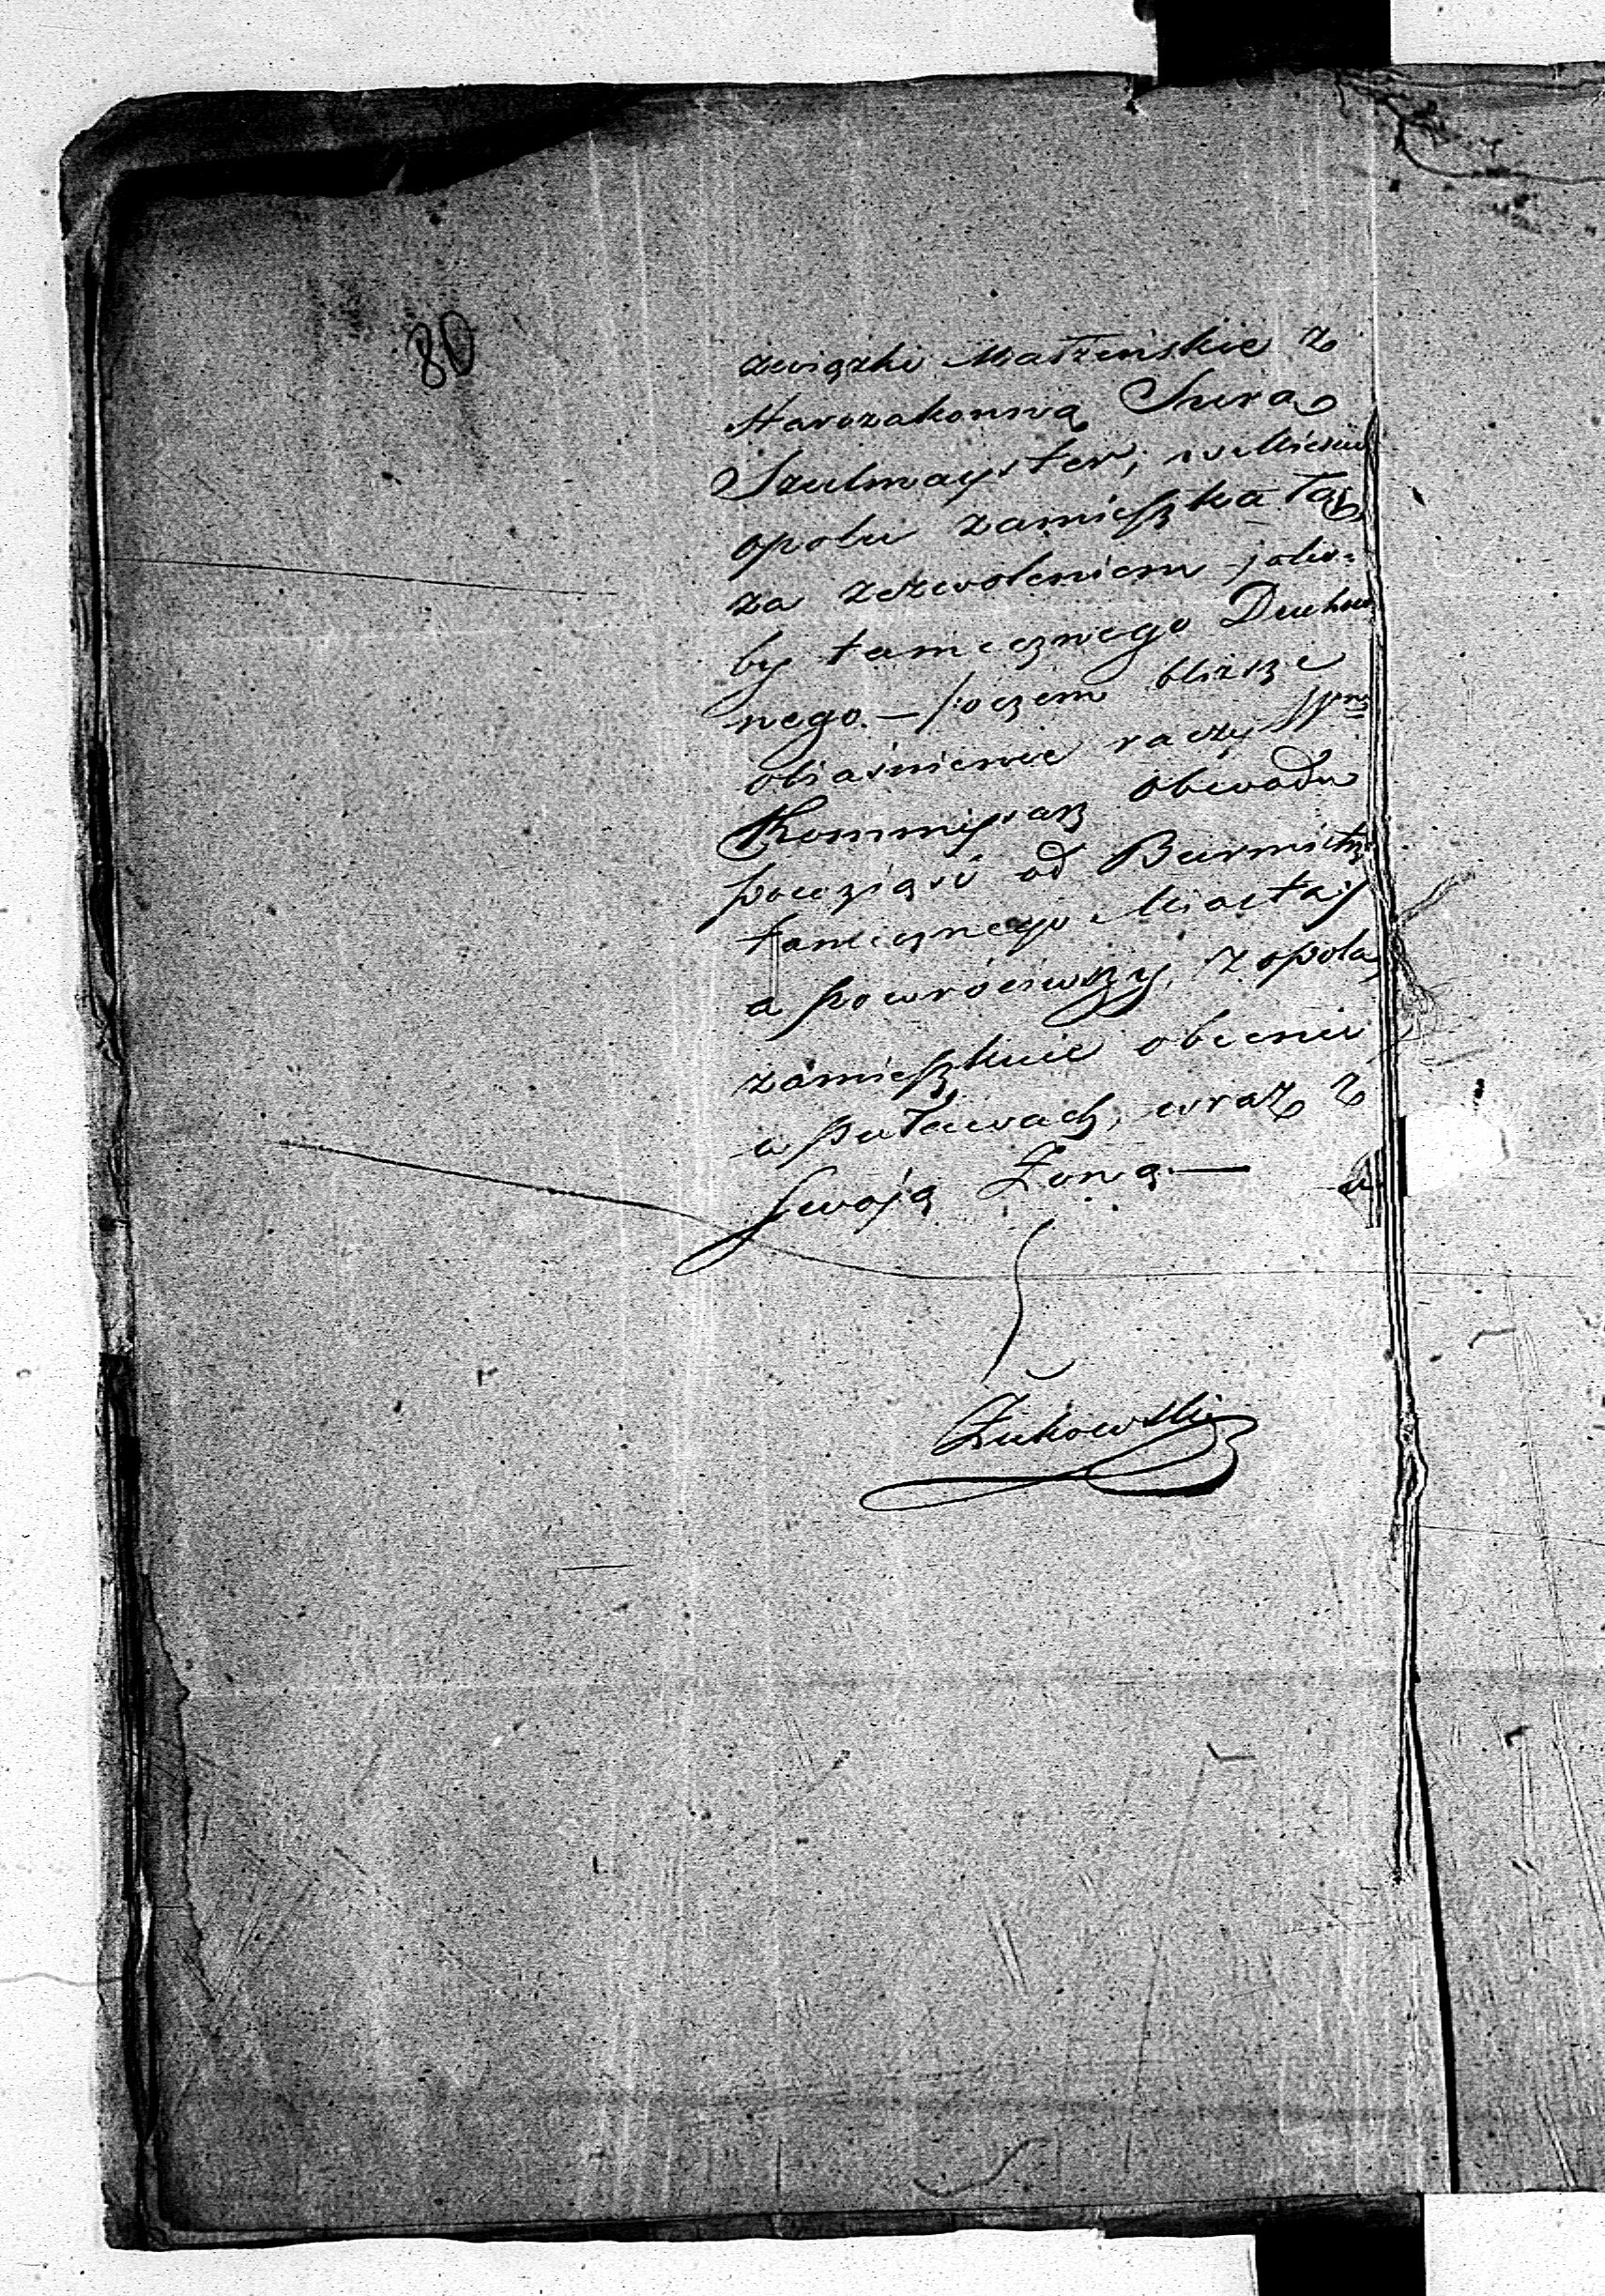 80
związki Małżeńskie z
Starozakonną Surą
Szulmayster, w Mieście
opolu zamieszkałą
za zezwoleniem jako-
by tamecznego Duchow
nego. — o czem bliższe
obiaśnienie raczy Wny
Kommisarz obwodu
powziąść od Burmistrz
tamecznego Miasta,
a powróciwszy, z opola,
zamieszkuie obecnie
w puławach, wraz z
Swoją Żoną. —
Żukowski